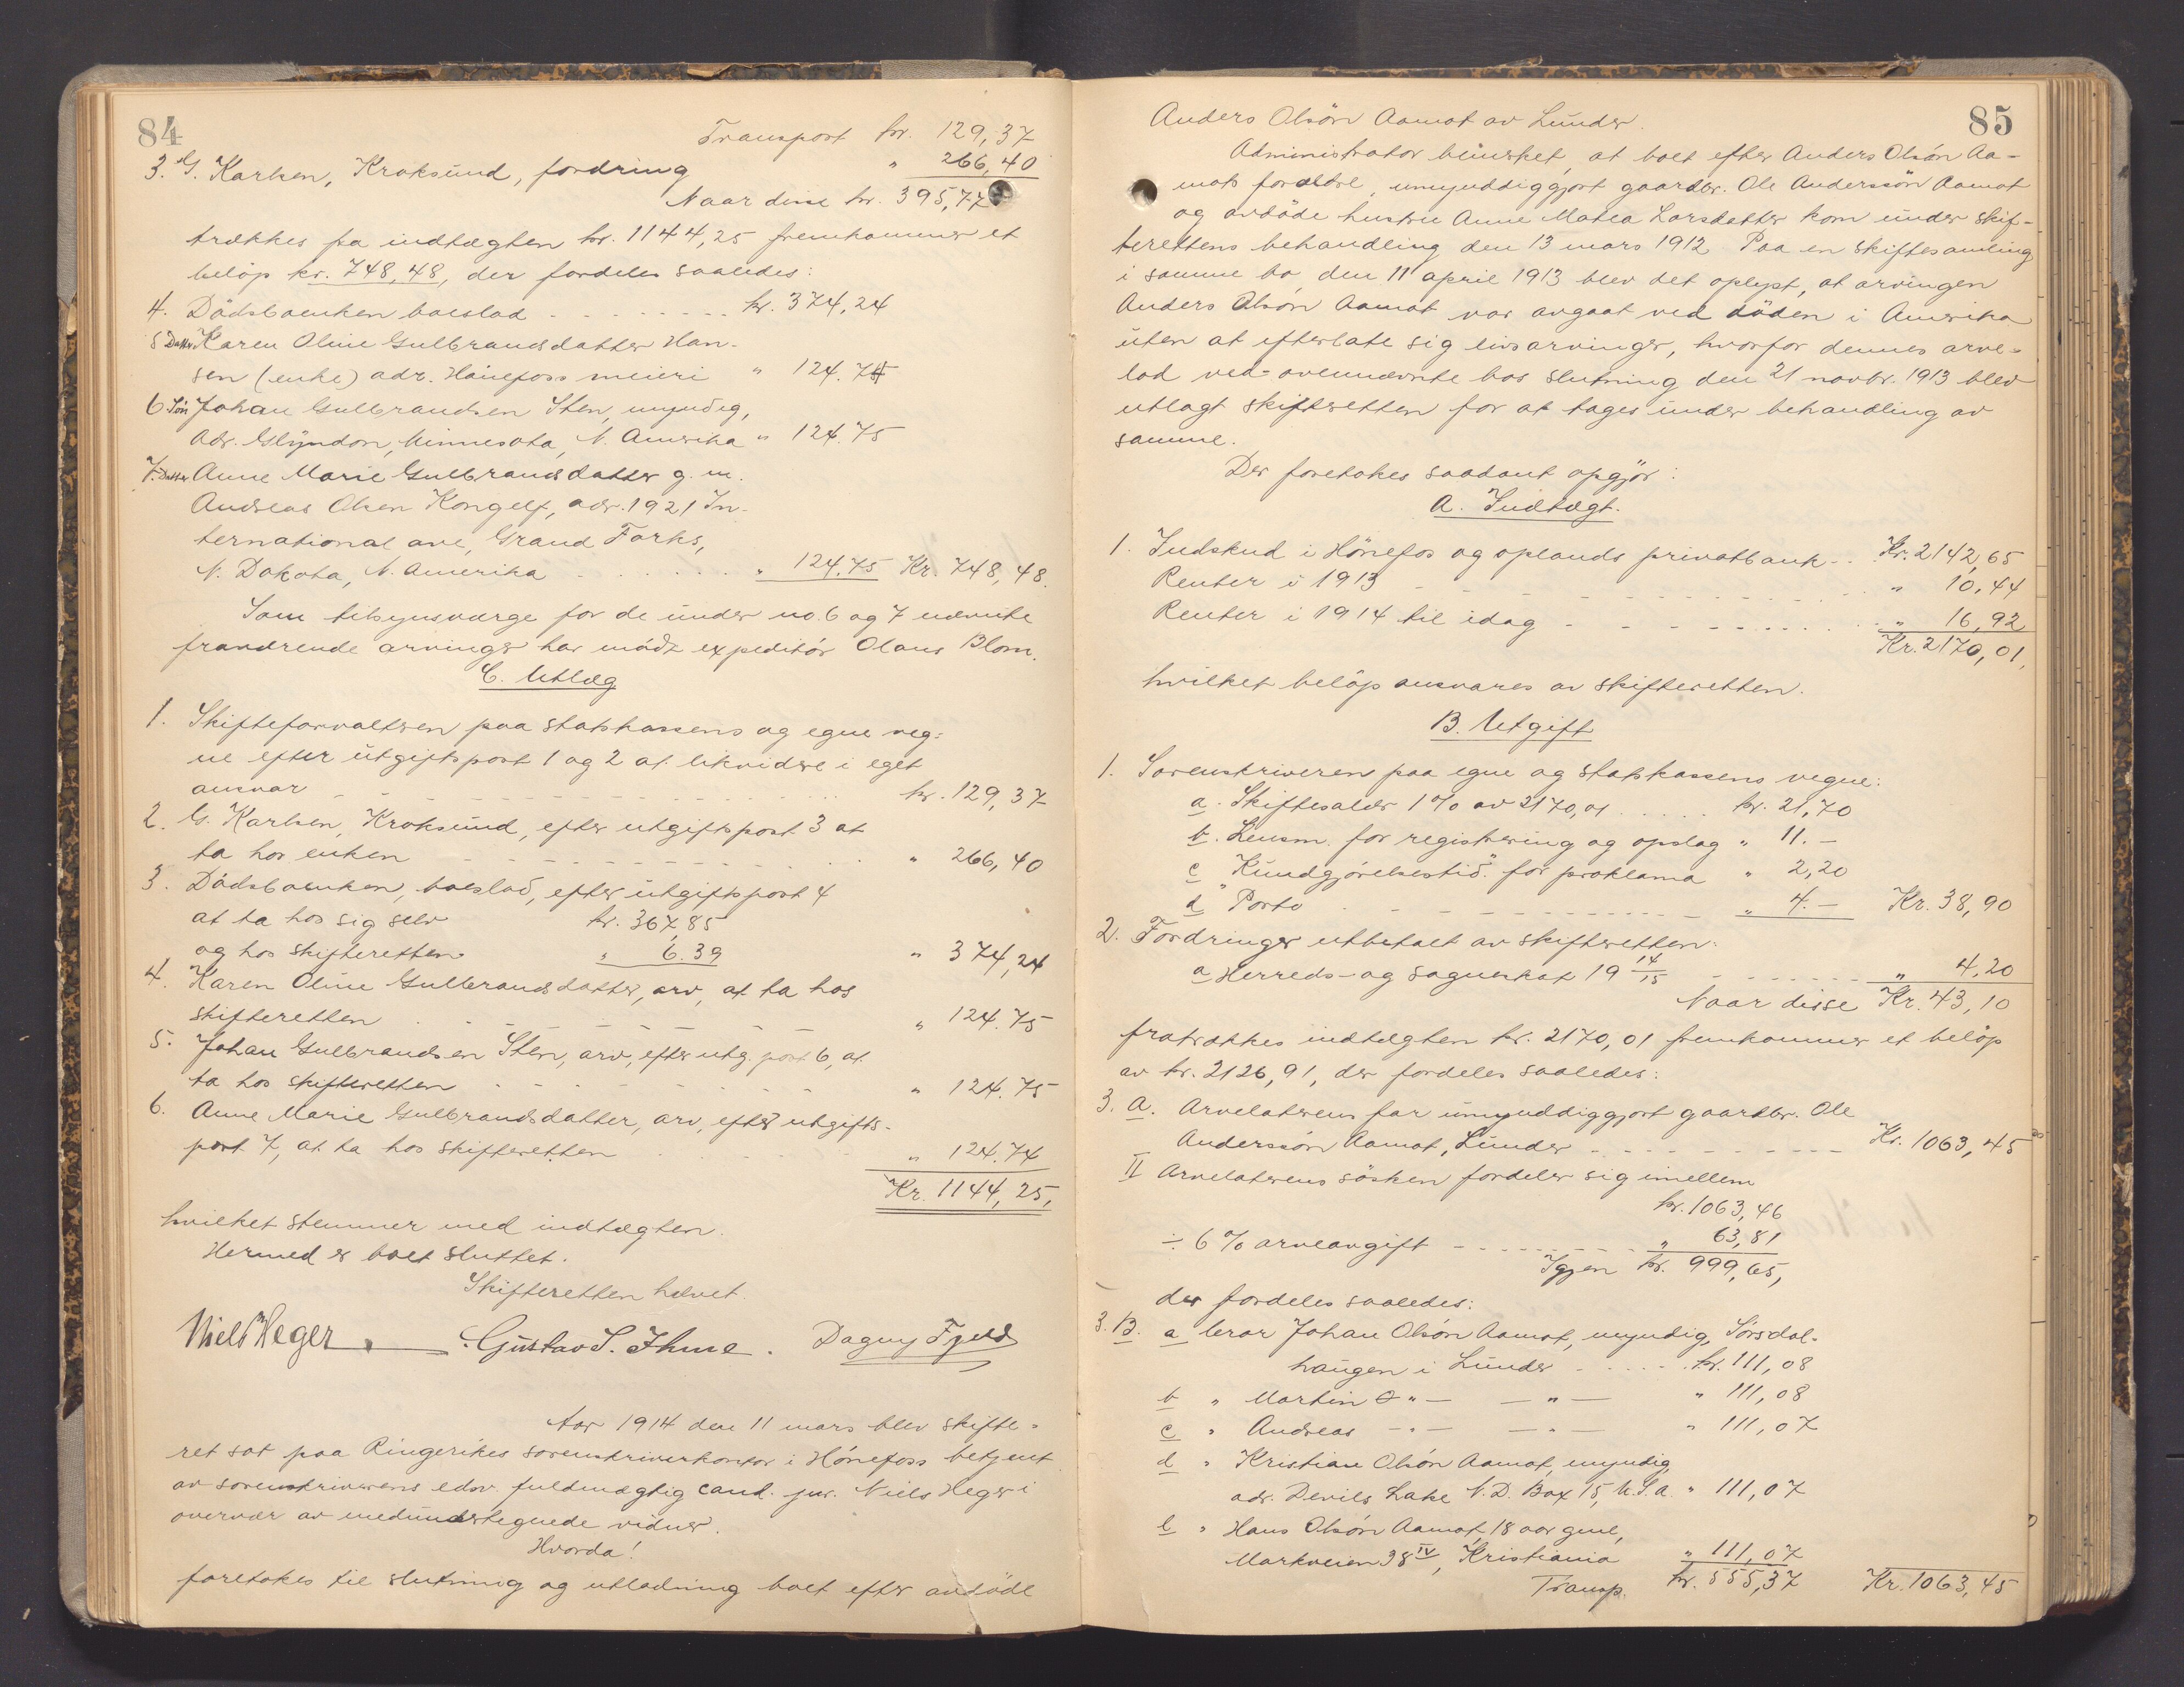 84
Transport kr. 129,37
3. G. Karlsen, Kroksund, fordring " 266,40
Naar disse kr. 395,77
trækkes fra indtægten kr. 1144,25 fremkommer et
beløp kr. 748,48, der fordeles saaledes:
4. Dødsboenken boeslod kr. 374,24
5 Datter Karen Oline Gulbrandsdatter Han-
sen (enke) adr. Hönefoss meieri " 124.74
6 Sön Johan Gulbrandsen Sten, myndig,
adr. Glyndon, Minnesota, N. Amerika " 124.75
7. Datter Anne Marie Gulbrandsdatter g. m.
Andreas Olsen Kongelf, adr. 1921 In-
ternational ave, Grand Forks,
N. Dakota, N. Amerika " 124.75 Kr. 748,48.
Som tilsynsværge for de under no. 6 og 7 nævnte
fraværende arvinger har mødt expeditör Olaus Blom.
C. Utlæg
1. Skifteforvalteren paa statskassens og egne veg-
ne efter utgiftspost 1 og 2 at likvidere i eget
ansvar kr. 129,37
2. G. Karlsen, Kroksund, efter utgiftspost 3 at
ta hos enken " 266,40
3. Dödsboenken, boeslod, efter utgiftspost 4
at ta hos sig selv kr. 367,85
og hos skifteretten " 6.39 " 374,24
4. Karen Oline Gulbrandsdatter, arv, at ta hos
skifteretten " 124.75
5. Johan Gulbrandsen Sten, arv, efter utg. post 6, at
ta hos skifteretten " 124.75
6. Anne Marie Gulbrandsdatter, arv, efter utgifts-
post 7, at ta hos skifteretten " 124.74
Kr. 1144,25,
hvilket stemmer med indtægten.
Hermed er boet sluttet.
Skifteretten hævet.
Niels Heger. Gustav S. Ihme. Dagny Fjeld
Aar 1914 den 11 mars blev skifte-
ret sat paa Ringerikes sorenskriverkontor i Hönefoss betjent
av sorenskriverens edsv. fuldmægtig cand. jur. Niels Heger i
overvær av medundertegnede vidner.
Hvorda!
foretokes til slutning og utlodning boet efter avdöde
85
Anders Olsön Aamot av Lunder.
Administrator bemerket, at boet efter Anders Olsön Aa-
mots forældre, umyndiggjort gaardbr. Ole Anderssön Aamot
og avdöde hustru Anne Matea Larsdatter kom under skif-
terettens behandling den 13 mars 1912. Paa en skiftesamling
i samme bo den 11 april 1913 blev det oplyst, at arvingen
Anders Olsön Aamot var avgaat ved döden i Amerika
uten at efterlate sig livsarvinger, hvorfor dennes arve-
lod ved ovennævnte bos slutning den 21 novbr. 1913 blev
utlagt skifteretten for at tages under behandling av
samme.
Der foretokes saadant opgjör:
A. Indtægt.
1. Indskud i Hönefos og oplands privatbank Kr. 2142,65
Renter i 1913 " 10,44
Renter i 1914 til idag " 16,92
Kr. 2170,01,
hvilket belöp ansvares av skifteretten.
B. Utgift
1. Sorenskriveren paa egne og statskassens vegne:
a. Skiftesalær 1% av 2170,01 kr. 21,70
b. Lensm. for registrering og opslag " 11.–
c "Kundgjörelsestid." for proklama " 2,20
d Porto " 4.– Kr. 38,90
2. Fordringer utbetalt av skifteretten:
a Herreds- og sogneskat 19 14/15 " 4,20
Naar disse Kr. 43,10
fratrækkes indtægten kr. 2170,01 fremkommer et belöp
av kr. 2126,91, der fordeles saaledes:
3. A. Arvelaterens far umyndiggjort gaardbr. Ole
Anderssön Aamot, Lunder Kr. 1063,45
II Arvelaterens sösken fordeler sig imellem
kr. 1063,46
÷ 6% arveavgift " 63,81
Igjen kr. 999,65,
der fordeles saaledes:
3. B. a bror Johan Olsön Aamot, myndig, Sörsdal-
haugen i Lunder kr. 111,08
b " Martin O " — — " — " 111,08
c " Andreas — " — — " — " 111,07
d " Kristian Olsön Aamot, myndig,
adr. Devils Lake N.D. Box 15, U.S.A. " 111,07
e " Hans Olsön Aamot, 18 aar gml,
Markveien 38 IV, Kristiania " 111,07
Transp. kr. 555,37 Kr. 1063,45